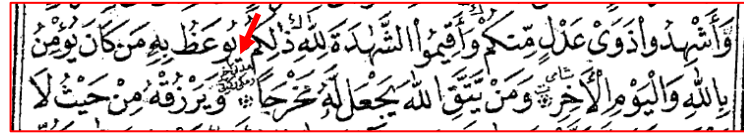 وَّأَشْهِدُوا۟ ذَوَىْ عَدْلٍ مِّنكُمْ وَأَقِيمُوا۟ الشَّهَٰدَةَ لِلَّهِ ذَٰلِكُمْ يُوعَظُ بِهِۦ مَن كَانَ يُؤْمِنُ
بِاللَّهِ وَالْيَوْمِ الْأَخِرِ وَمَن يَتَّقِ اللَّهَ يَجْعَل لَّهُۥ مَخْرَجًا وَّيَرْزُقْهُ مِنْ حَيْثُ لَا